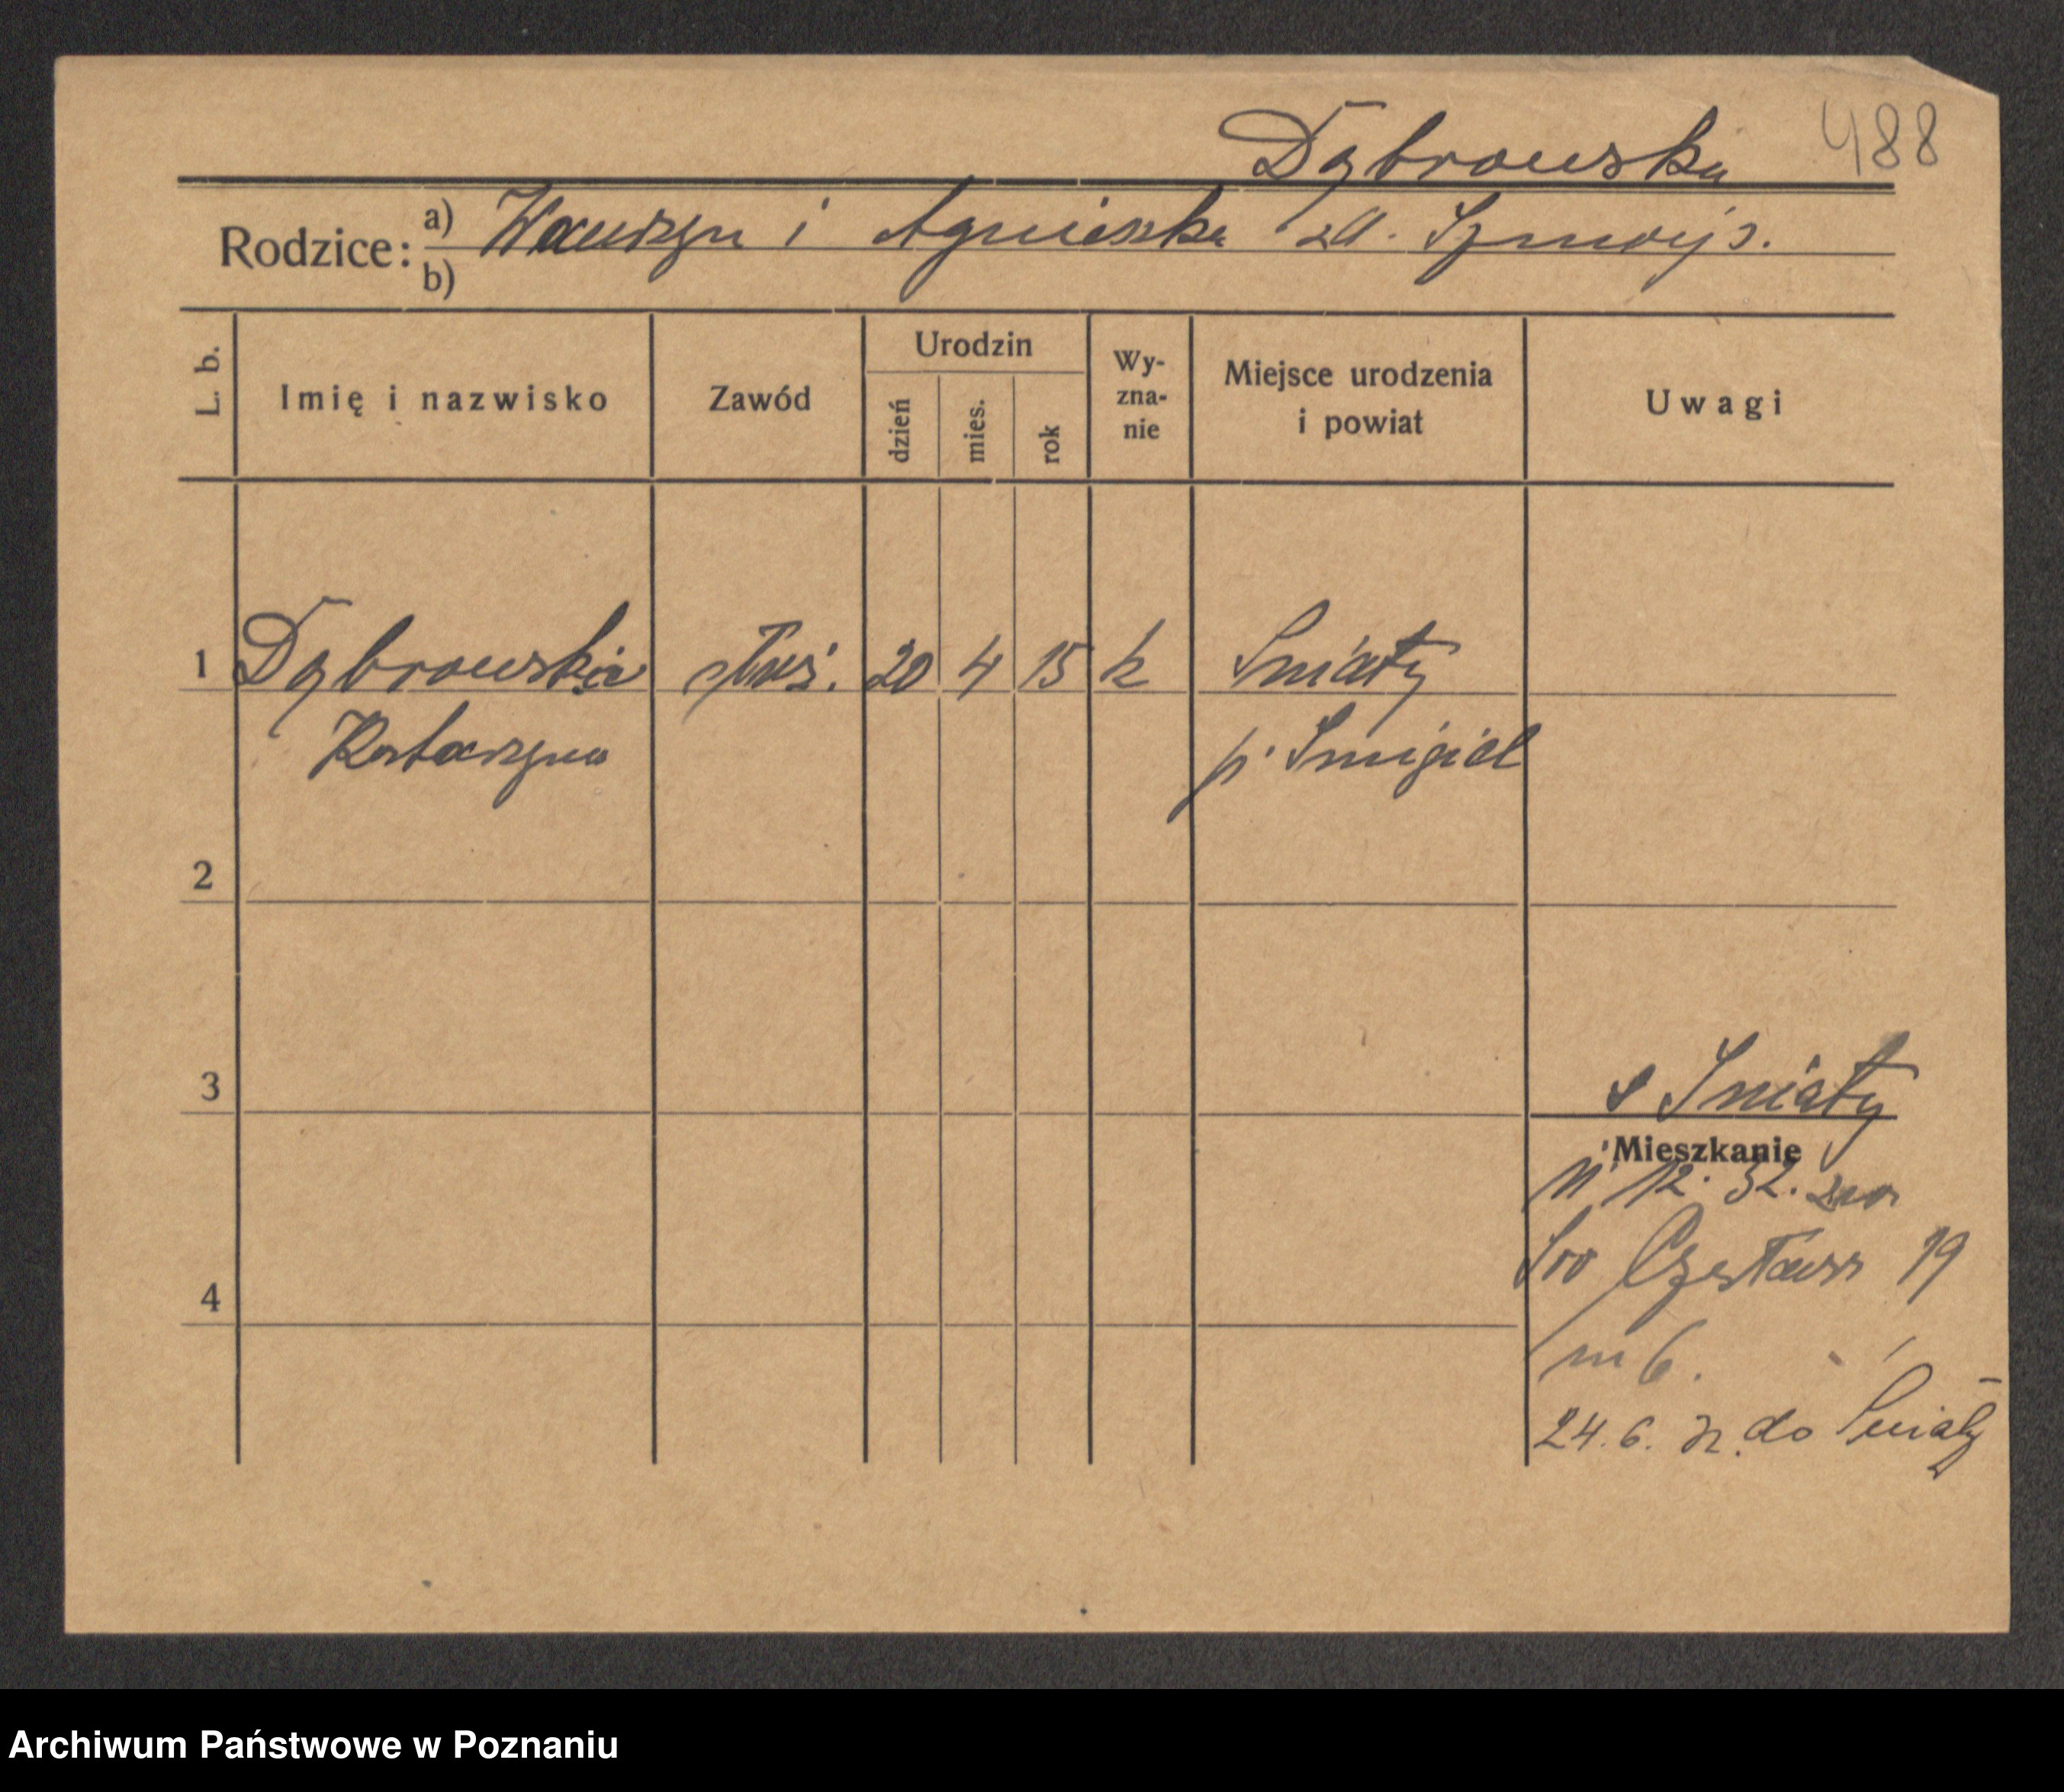 Dąbrowska 488
Rodzice: a) Wawrzyn i Agnieszka zd.
b)
L. b. Imię i nazwisko Zawód Urodzin dzień mies. rok Wy-zna-nie Miejsce urodzenia i powiat Uwagi
1 Dąbrowska służ. 20 4 15 k Śniaty
Katarzyna p. Śmigiel
2
3
s Śniaty
Mieszkanie
12. 32.
19
m 6.
4
24. 6. do Śniaty
Archiwum Państwowe w Poznaniu